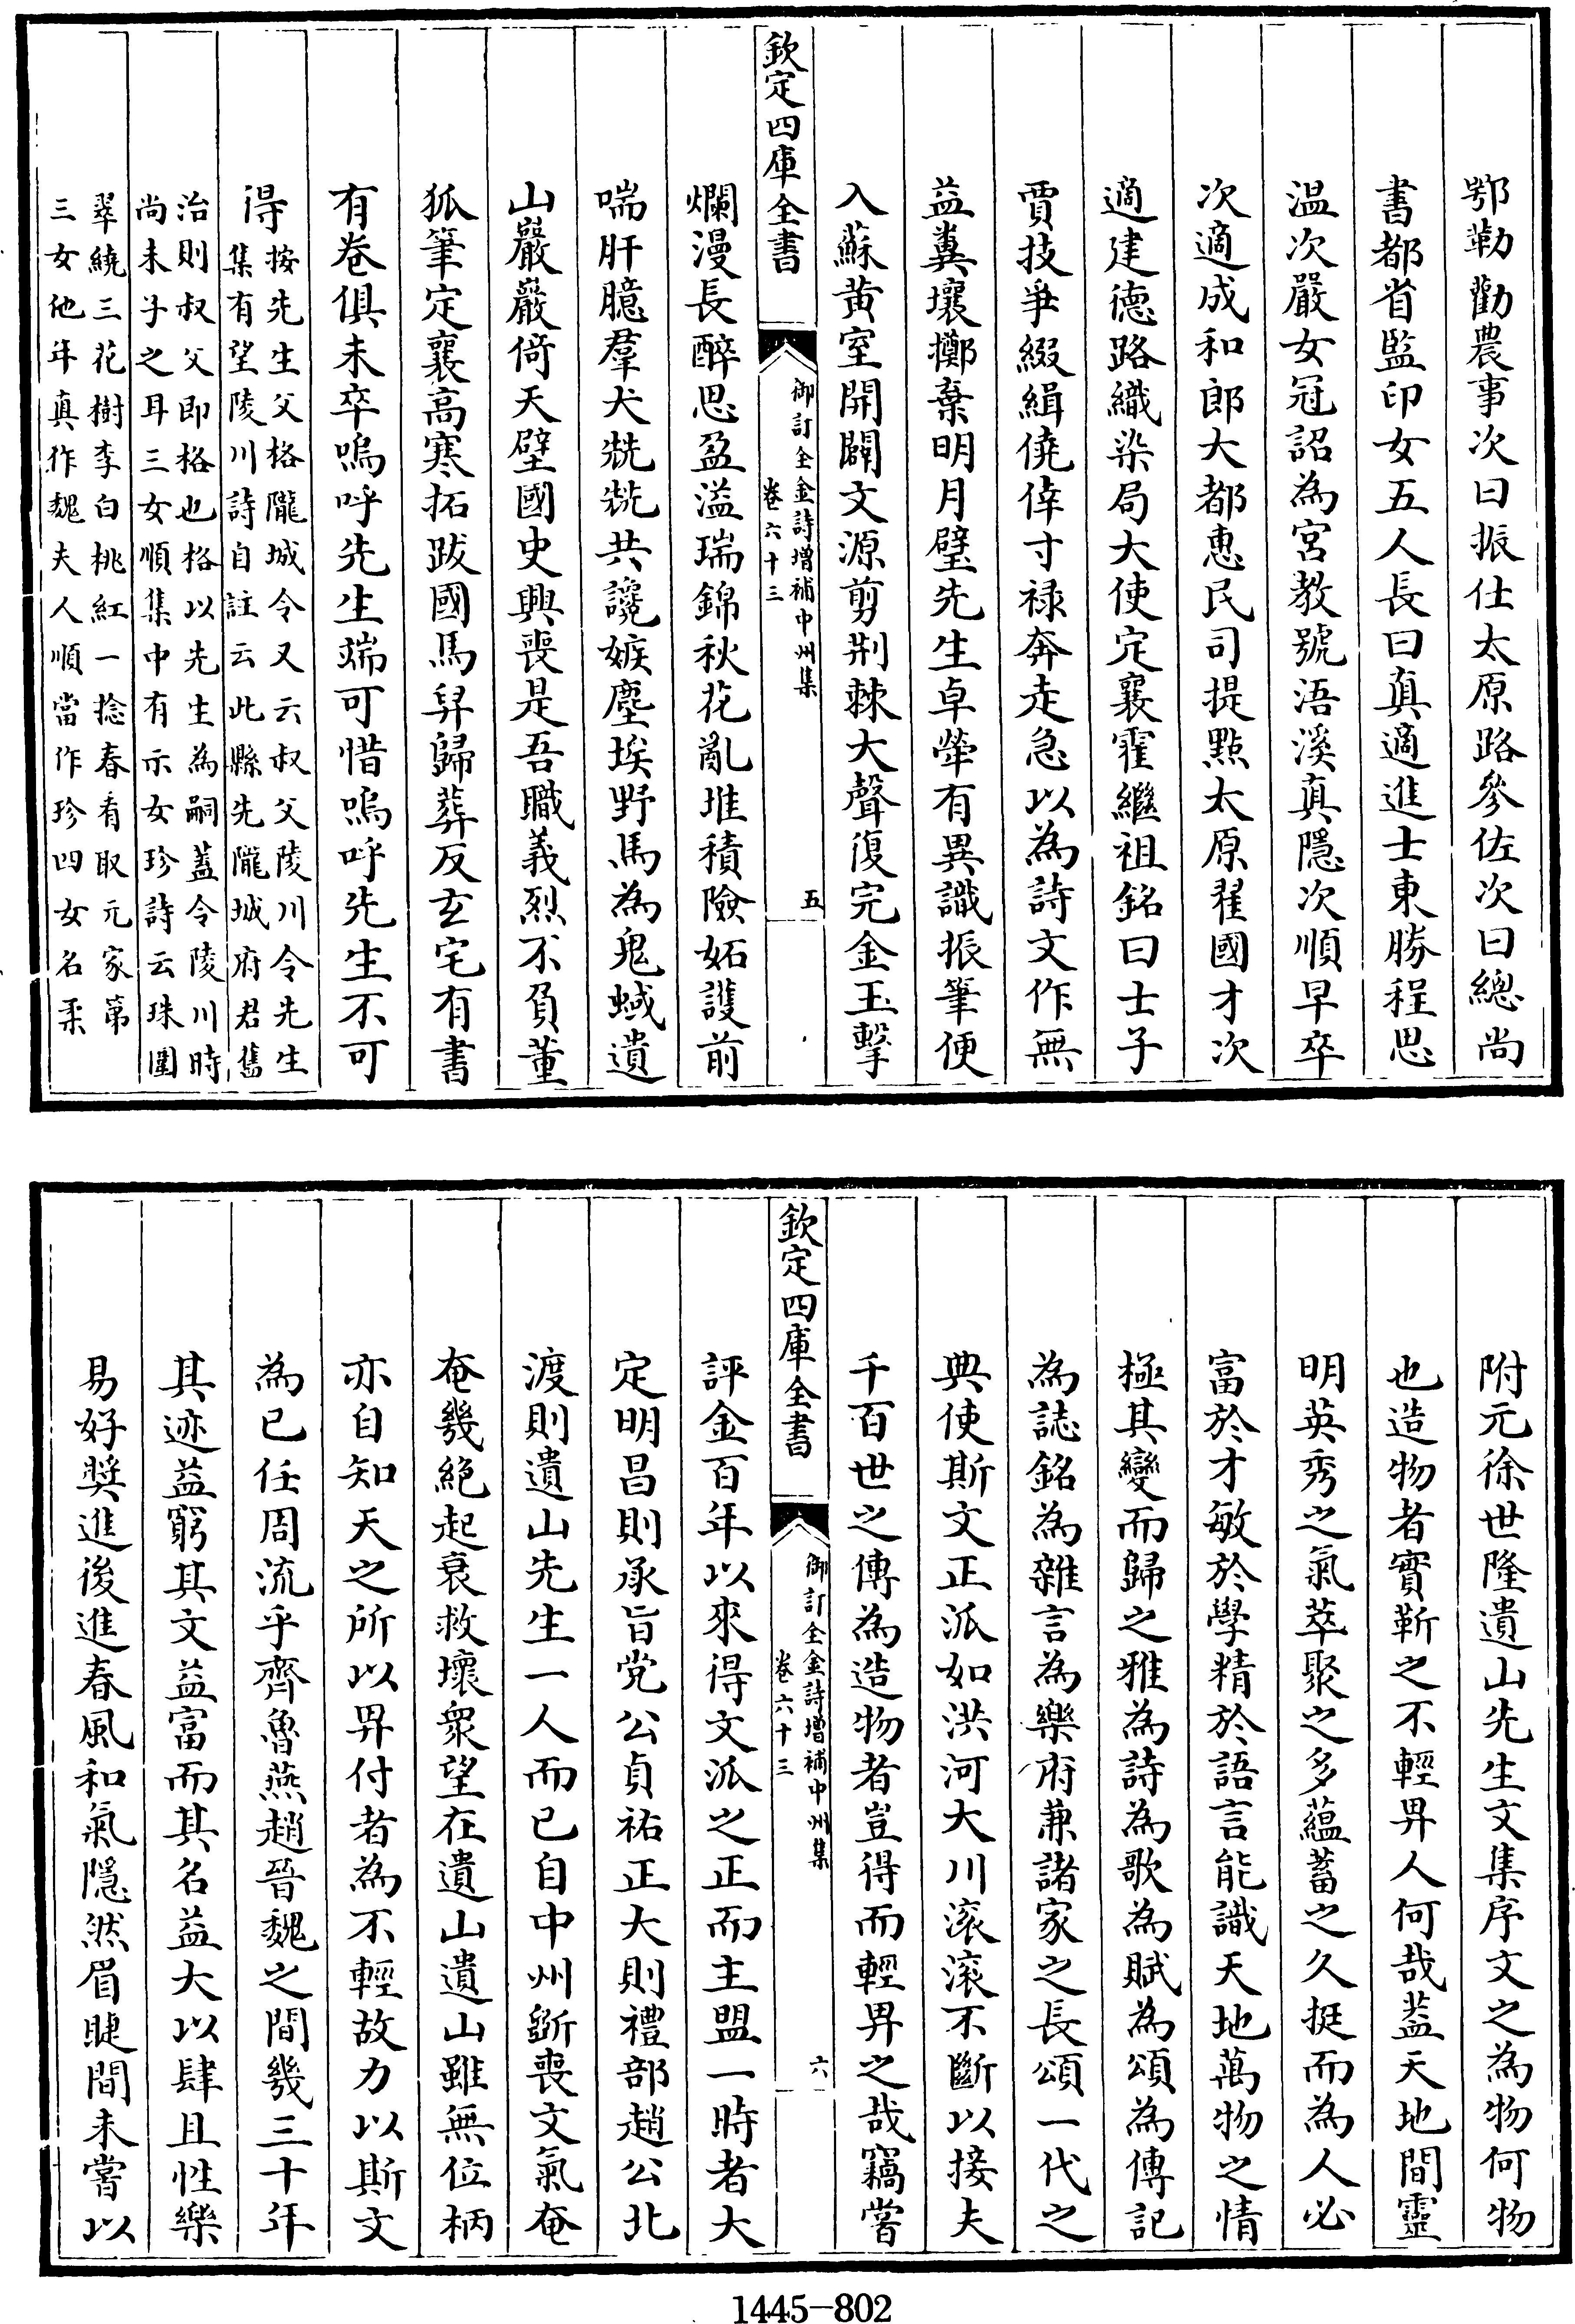 鄂勒勸農事次曰振仕太原路參佐次曰總尚
書都省監印女五人長曰真適進士東勝程思
溫次嚴女冠詔為宮教號浯溪真隱次順早卒
次適成和郎大都惠民司提點太原翟國才次
適建德路織染局大使定襄霍繼祖銘曰士子
賈技爭綴緝僥倖寸祿奔走急以為詩文作無
益糞壤擲棄明月璧先生卓犖有異識振筆便
入蘇黃室開闢文源剪荆棘大聲復完金玉擊
欽定四庫全書
御訂全金詩增補中州集
卷六十三
五
爛漫長醉思盈溢瑞錦秋花亂堆積險妬護前
喘肝臆羣犬㹞㹞共讒嫉塵埃野馬為鬼蜮遺
山巖巖倚天壁國史興喪是吾職義烈不負董
狐筆定襄高寒拓跋國馬舁歸葬反玄宅有書
有卷俱未卒嗚呼先生端可惜嗚呼先生不可
得
按先生父格隴城令又云叔父陵川令先生
集有望陵川詩自註云此縣先隴城府君舊
治則叔父即格也格以先生為嗣蓋令陵川時
尚未子之耳三女順集中有示女珍詩云珠圍
翠繞三花樹李白桃紅一捻春看取元家第
三女他年真作魏夫人順當作珍四女名柔
附元徐世隆遺山先生文集序文之為物何物
也造物者實靳之不輕畀人何哉蓋天地間靈
明英秀之氣萃聚之多蘊蓄之久挺而為人必
富於才敏於學精於語言能識天地萬物之情
極其變而歸之雅為詩為歌為賦為頌為傳記
為誌銘為雜言為樂府兼諸家之長頌一代之
典使斯文正派如洪河大川滚滚不斷以接夫
千百世之傳為造物者豈得而輕畀之哉竊嘗
欽定四庫全書
御訂全金詩增補中州集
卷六十三
六
評金百年以來得文派之正而主盟一時者大
定明昌則承旨党公貞祐正大則禮部趙公北
渡則遺山先生一人而已自中州斷喪文氣奄
奄幾絕起衰救壞衆望在遺山遺山雖無位柄
亦自知天之所以畀付者為不輕故力以斯文
為已任周流乎齊魯燕趙晉魏之間幾三十年
其迹益窮其文益富而其名益大以肆且性樂
易好奬進後進春風和氣隱然眉睫間未嘗以
1445-802